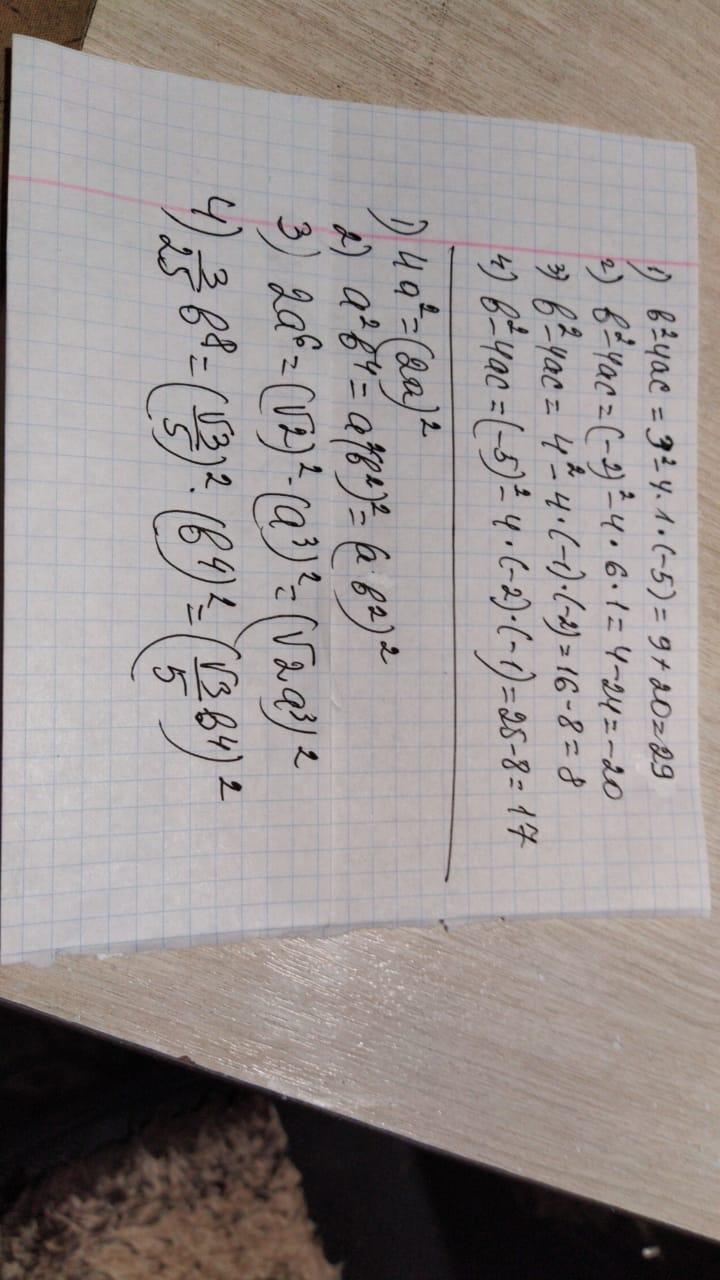 1) b²-4ac = 3²-4·1·(-5) = 9+20=29
2) b²-4ac = (-2)²-4·6·1 = 4-24=-20
3) b²-4ac = 4²-4·(-1)·(-2)=16-8=8
4) b²-4ac = (-5)²-4·(-2)·(-1)=25-8=17
1) 4a²=(2a)²
2) a²b⁴= a²(b²)²=(a·b²)²
3) 2a⁶=(√2)²·(a³)²=(√2a³)²
4) 3/25 b⁸=(√3/5)²·(b⁴)²=(√3/5 b⁴)²